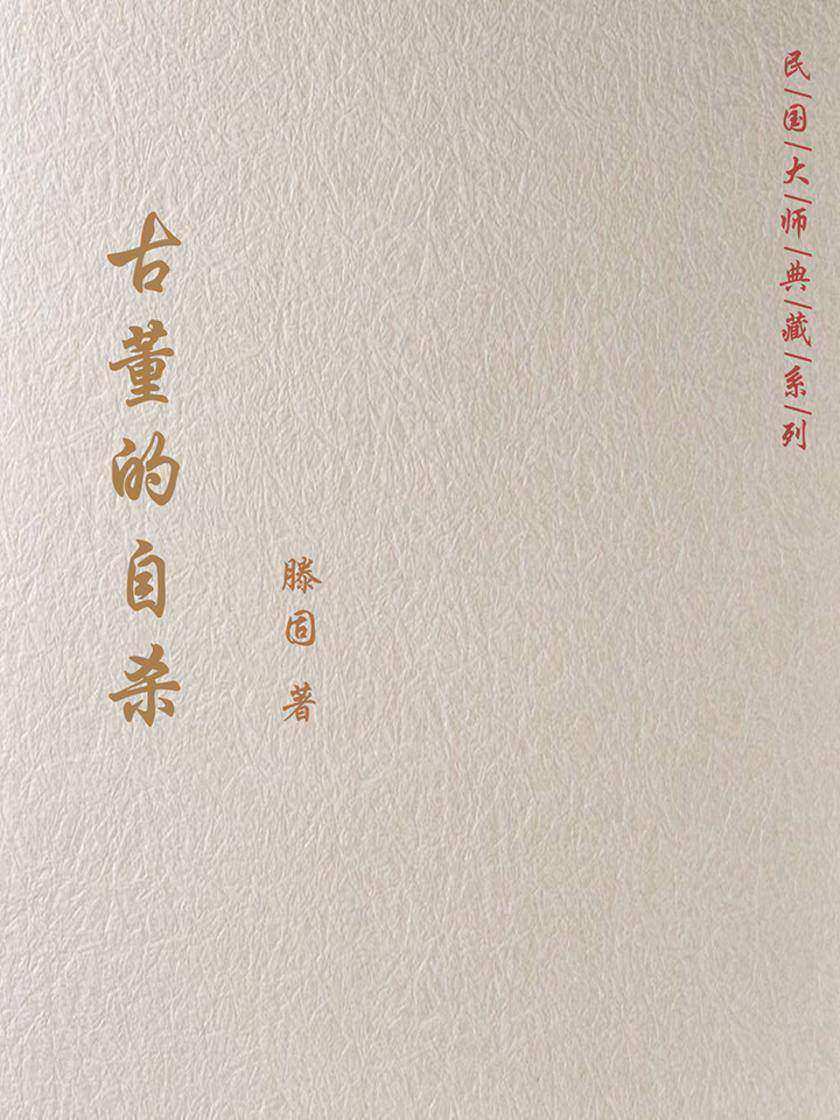 民/国/大/师/典/藏/系/列
古董的自杀
滕固 著